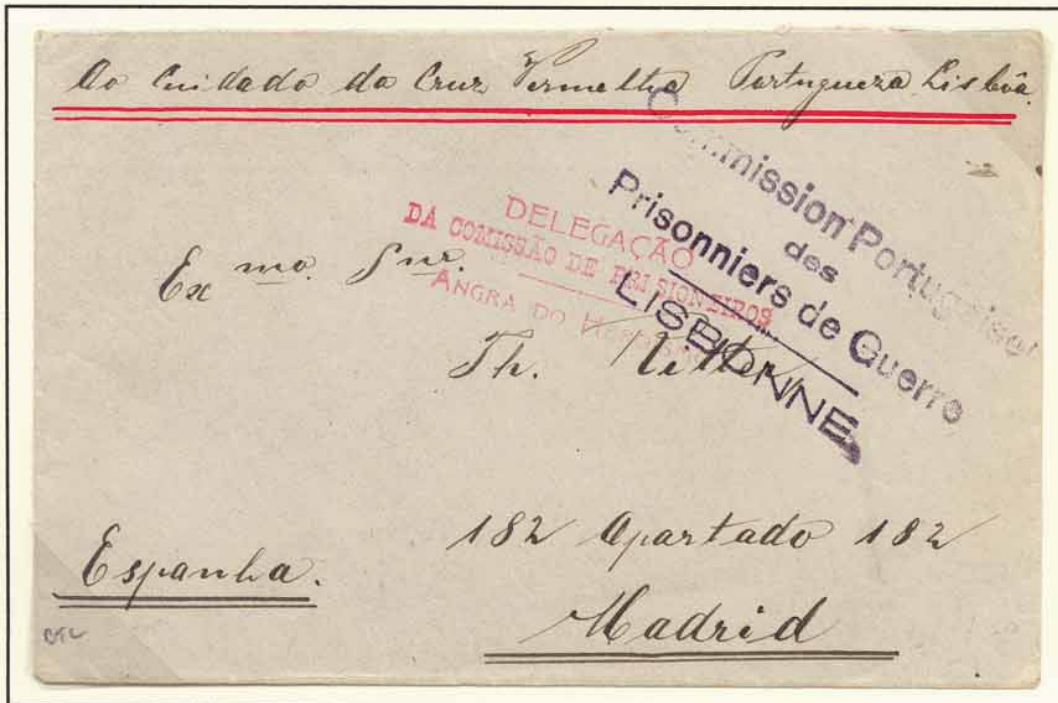 Ao Cuidado da Cruz Vermelha Portugueza Lisbôa.
Commission Portugaise
des
Prisonniers de Guerre
LISBONNE
DELEGAÇÃO
DA COMISSÃO DE PRISIONEIROS
ANGRA DO
Ex mo. Snr.
Th.
182 Apartado 182
Espanha.
Madrid